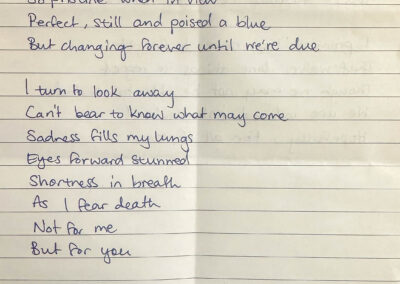 when in view
Perfect, still and poised a blue
But changing forever until we're due
I turn to look away
Can't bear to know what may come
Sadness fills my lungs
Eyes forward stunned
Shortness in breath
As I fear death
Not for me
But for you